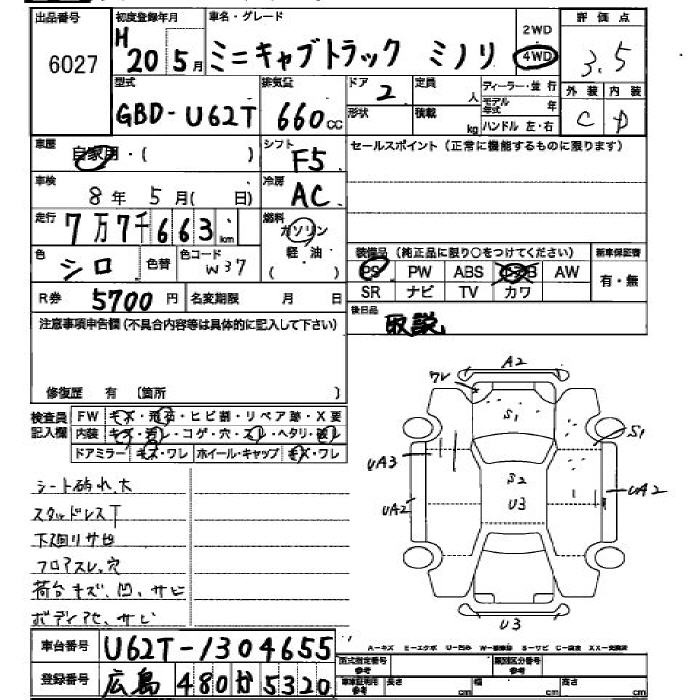 出品番号 初度登録年月 車名・グレード 2WD 評価点
6027 H20 5月 ミニキャブトラック ミノリ 4WD 3.5
型式 排気量 ドア 定員 ディーラー・並行 外装 内装
GBD-U62T 660cc 2 人 モデル年式 年 C D
形状 積載 kg ハンドル 左・右
車歴 自家用・( ) シフト F5 セールスポイント (正常に機能するものに限ります)
車検 8年 5月( 日) 冷房 AC
走行 7万7千663km 燃料 ガソリン 軽油 ( )
色 シロ 色替 色コード W37 装備品 (純正品に限り○をつけてください) 新車保証書
PS PW ABS エアB AW 有・無
R券 5700円 名変期限 月 日 SR ナビ TV カワ
注意事項申告欄 (不具合内容等は具体的に記入して下さい) 後日品 取説
修復歴 有 〔箇所 〕
検査員記入欄 FW キズ・飛石・ヒビ割・リペア跡・X要
内装 キズ・汚レ・コゲ・穴・スレ・ヘタリ・破レ
ドアミラー キズ・ワレ ホイール・キャップ キズ・ワレ
A2
ワレ
S1
S1
UA3
S2
UA2
U3
UA2
U3
シート破れ大
スタッドレスT
下廻りサビ
フロアスレ、穴
荷台キズ、凹、サビ
ボディアセ、サビ
車台番号 U62T-1304655
A-キズ E-エクボ U-凹み S-サビ
登録番号 広島 480 か 5320
型式指定番号 参考 類別区分番号 参考
車庫証明用 参考 長さ cm 幅 cm 高さ cm